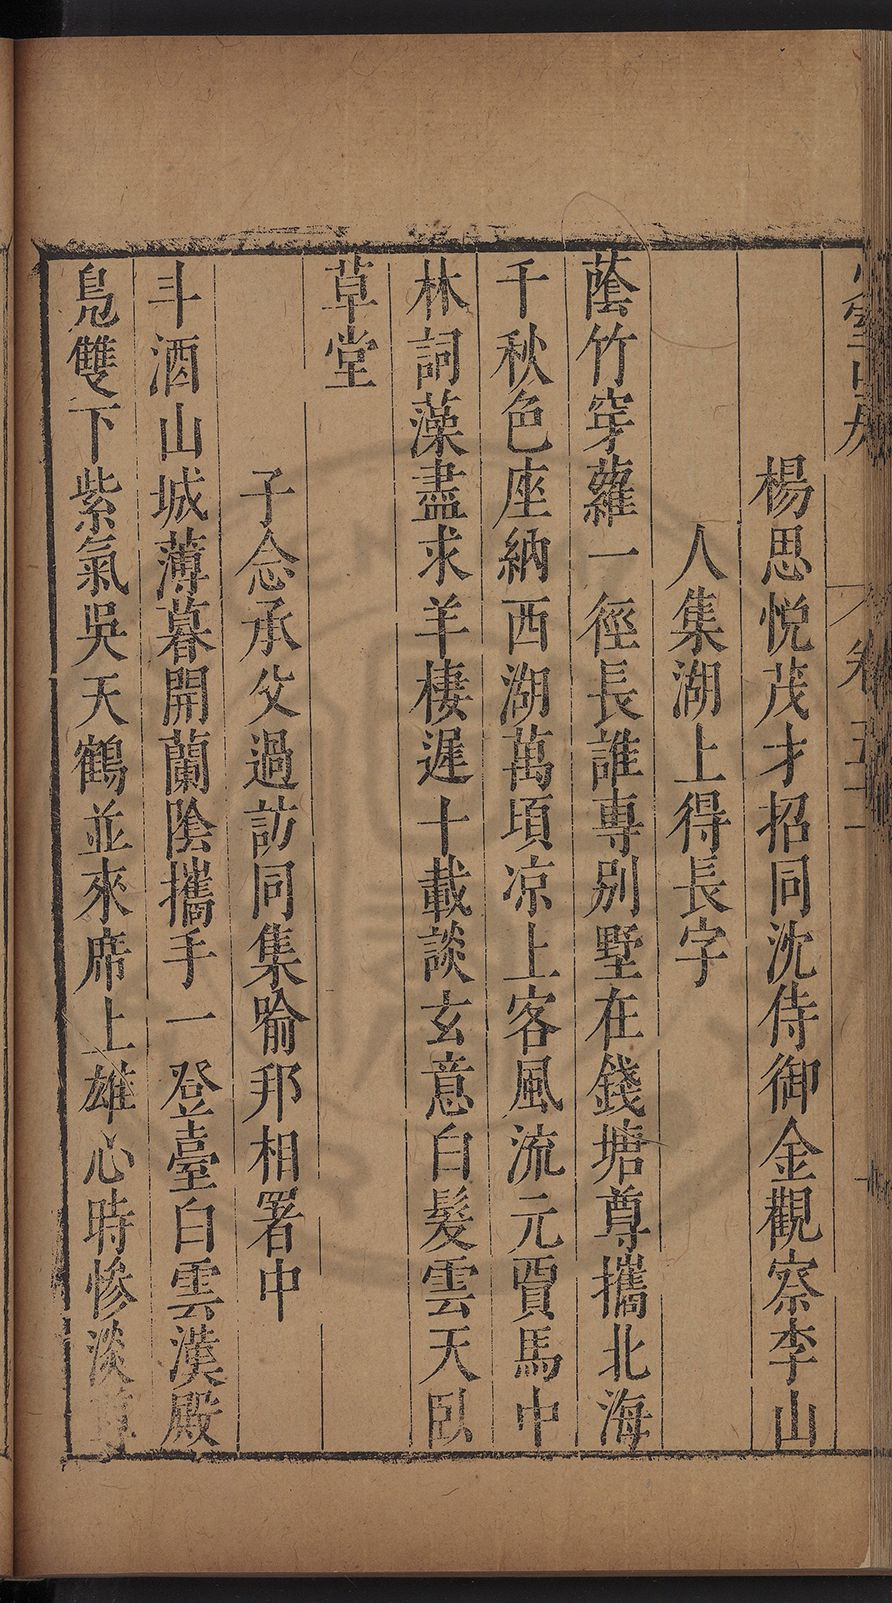 卷五十一
楊思悅茂才招同沈侍御金觀察李山
人集湖上得長字
蔭竹穿蘿一徑長誰專別墅在錢塘尊攜北海
千秋色座納西湖萬頃凉上客風流元賈馬中
林詞藻盡求羊棲遲十載談玄意白髮雲天臥
草堂
子念承父過訪同集喻邦相署中
斗酒山城薄暮開蘭陰攜手一登臺白雲漢殿
鳧雙下紫氣吳天鶴並來席上雄心時慘淡尊